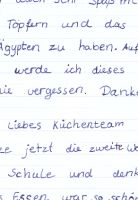 auch sehr Spaß
Töpfern und das
Ägypten zu haben. Auf
werde ich dieses
nie vergessen. Danke
Liebes Küchenteam
jetzt die zweite
Schule und
Essen war so